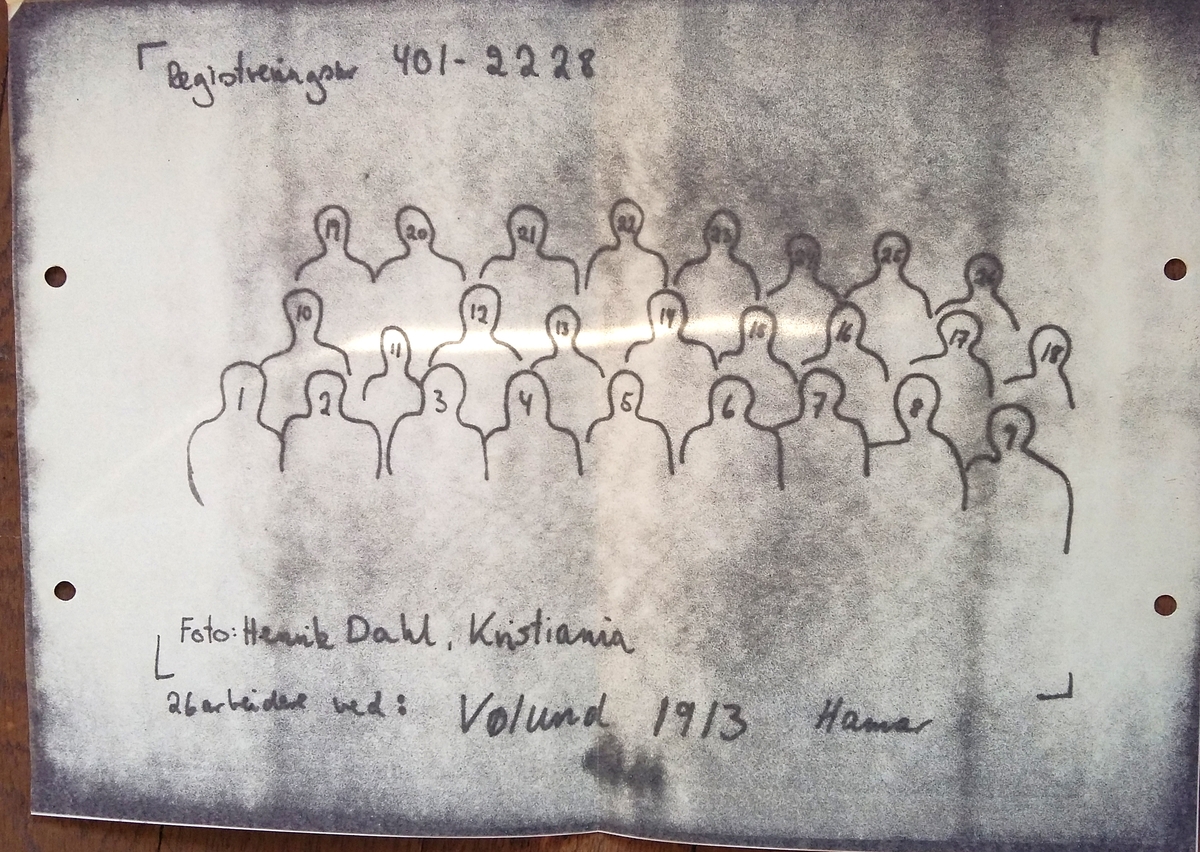 Registreringsnr 401-2228
19 20 21 22 23 24 25 26
10 11 12 13 14 15 16 17 18
1 2 3 4 5 6 7 8 9
Foto: Henrik Dahl, Kristiania
26 arbeidere ved: Vølund 1913 Hamar